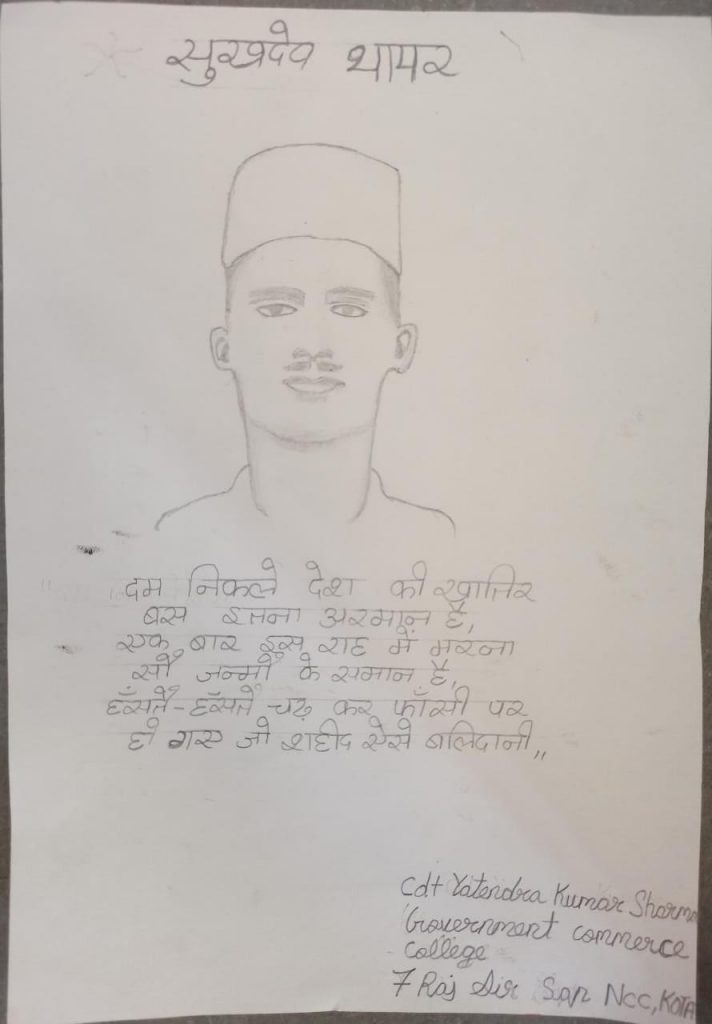 सुखदेव थापर
दम निकले देश की खातिर
बस इतना अरमान है,
एक बार इस राह में मरना
सौ जन्मों के समान है,
हँसते-हँसते चढ़ कर फाँसी पर
हो गए जो शहीद ऐसे बलिदानी,,
Cdt Yatendra Kumar Sharma
Government commerce
College
7 Raj Dir Sqn NCC, KOTA